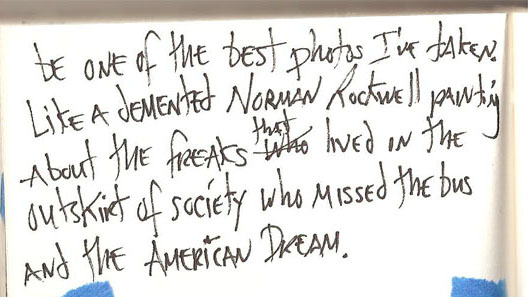 be one of the best photos I've taken.
Like A demented Norman Rockwell painting
About the freaks that who lived in the
outskirt of society who missed the bus
and the American Dream.